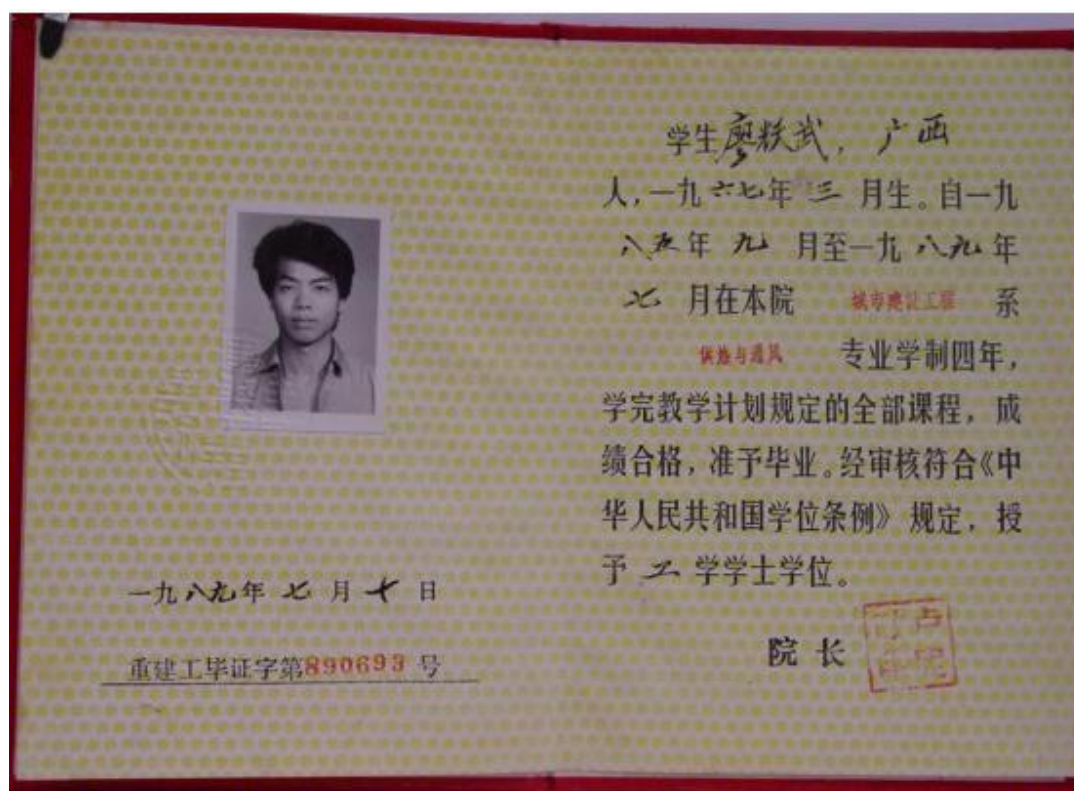 一九八九年七月十日
重建工毕证字第890693号
学生廖轶武，广西
人，一九六七年三月生。自一九
八五年九月至一九八九年
七月在本院城市建设工程系
供热与通风专业学制四年，
学完教学计划规定的全部课程，成
绩合格，准予毕业。经审核符合《中
华人民共和国学位条例》规定，授
予工学学士学位。
院长